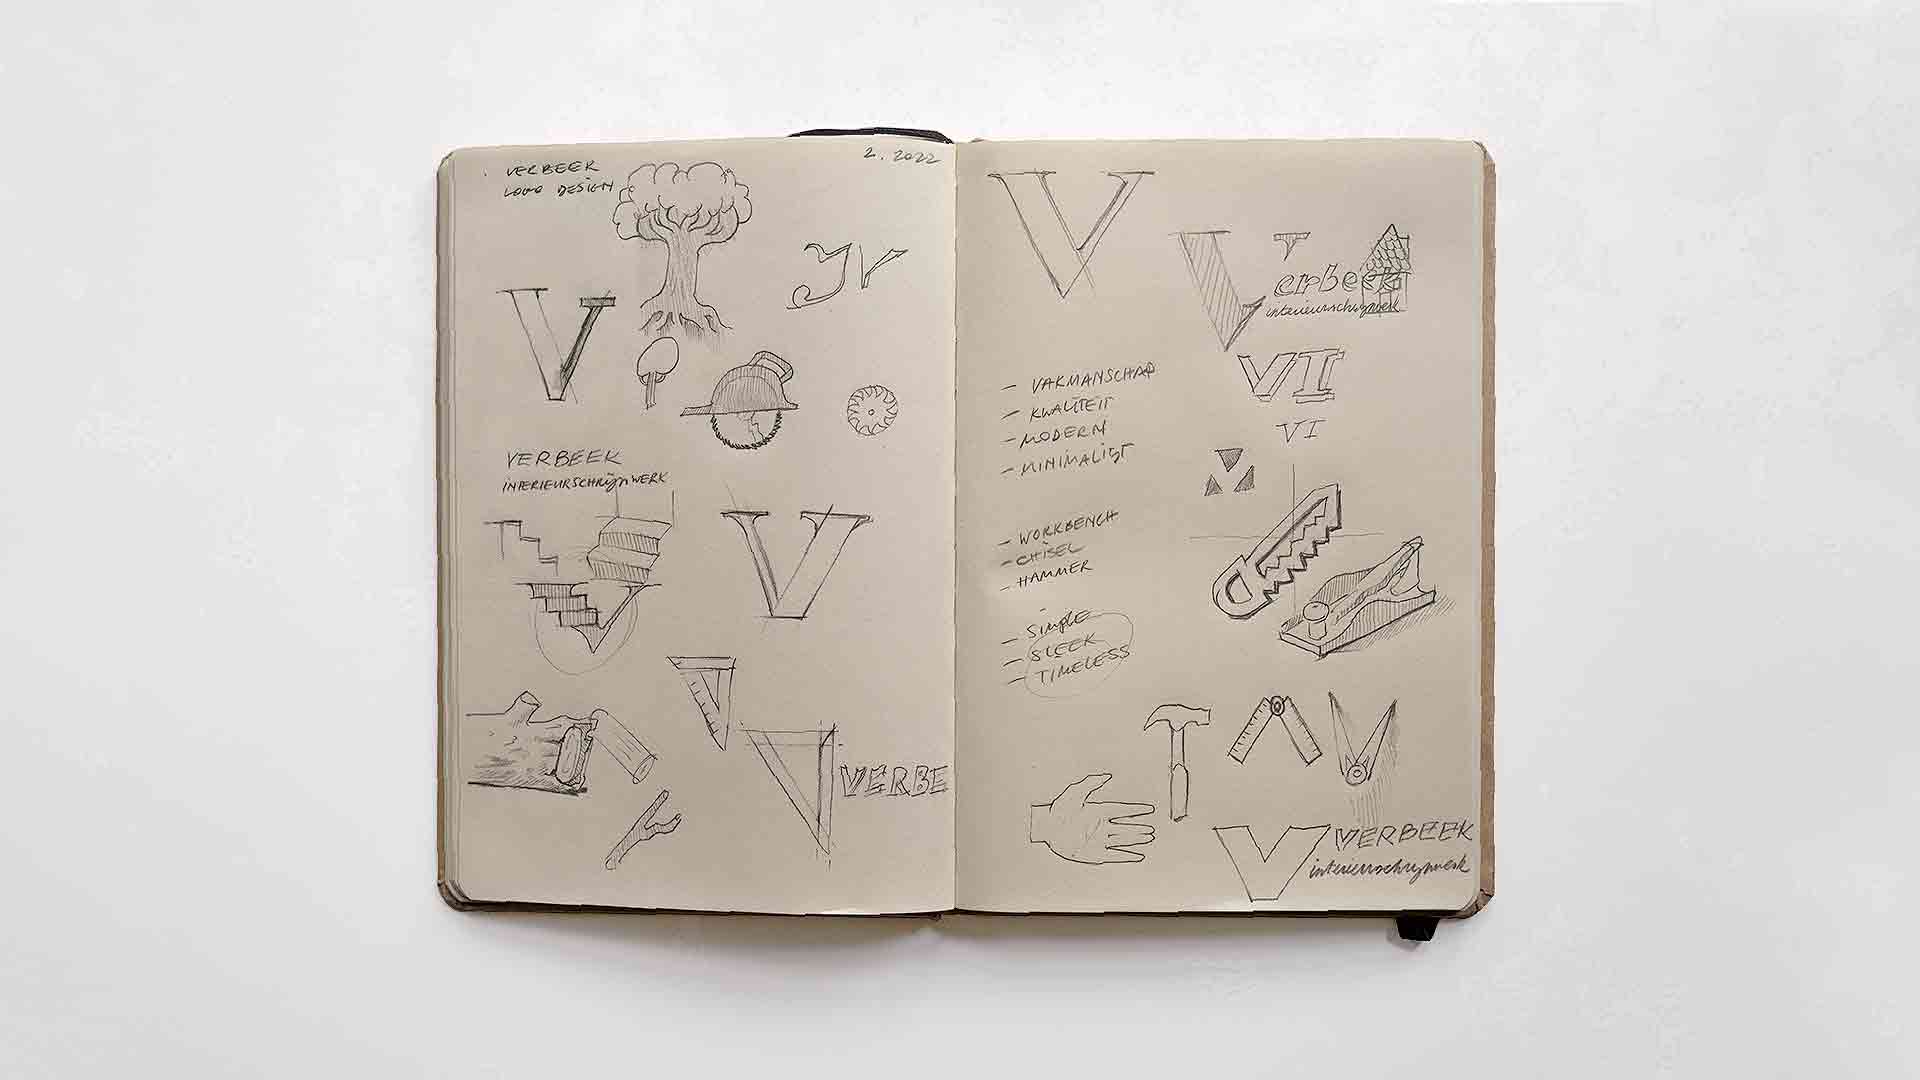 VERBEEK
LOGO DESIGN
2. 2022
V
VERBEEK
INTERIEURSCHRIJNWERK
V
V
VERBE
V
V
erbeek
interieurschrijnwerk
VI
VI
- VAKMANSCHAP
- KWALITEIT
- MODERN
- MINIMALIST
- WORKBENCH
- CHISEL
- HAMMER
- Simple
- SLEEK
- TIMELESS
V VERBEEK
interieurschrijnwerk